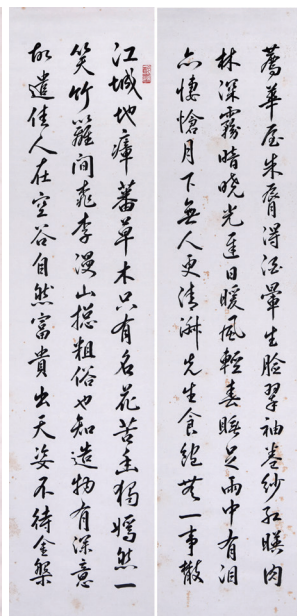 江城地瘴蕃草木只有名花苦幽獨嫣然一
笑竹籬間桃李漫山總粗俗也知造物有深意
故遣佳人在空谷自然富貴出天姿不待金槃
薦華屋朱脣得酒暈生臉翠袖卷紗紅暎肉
林深霧暗曉光遲日暖風輕春睡足雨中有淚
亦悽愴月下無人更清淑先生食飽无一事散